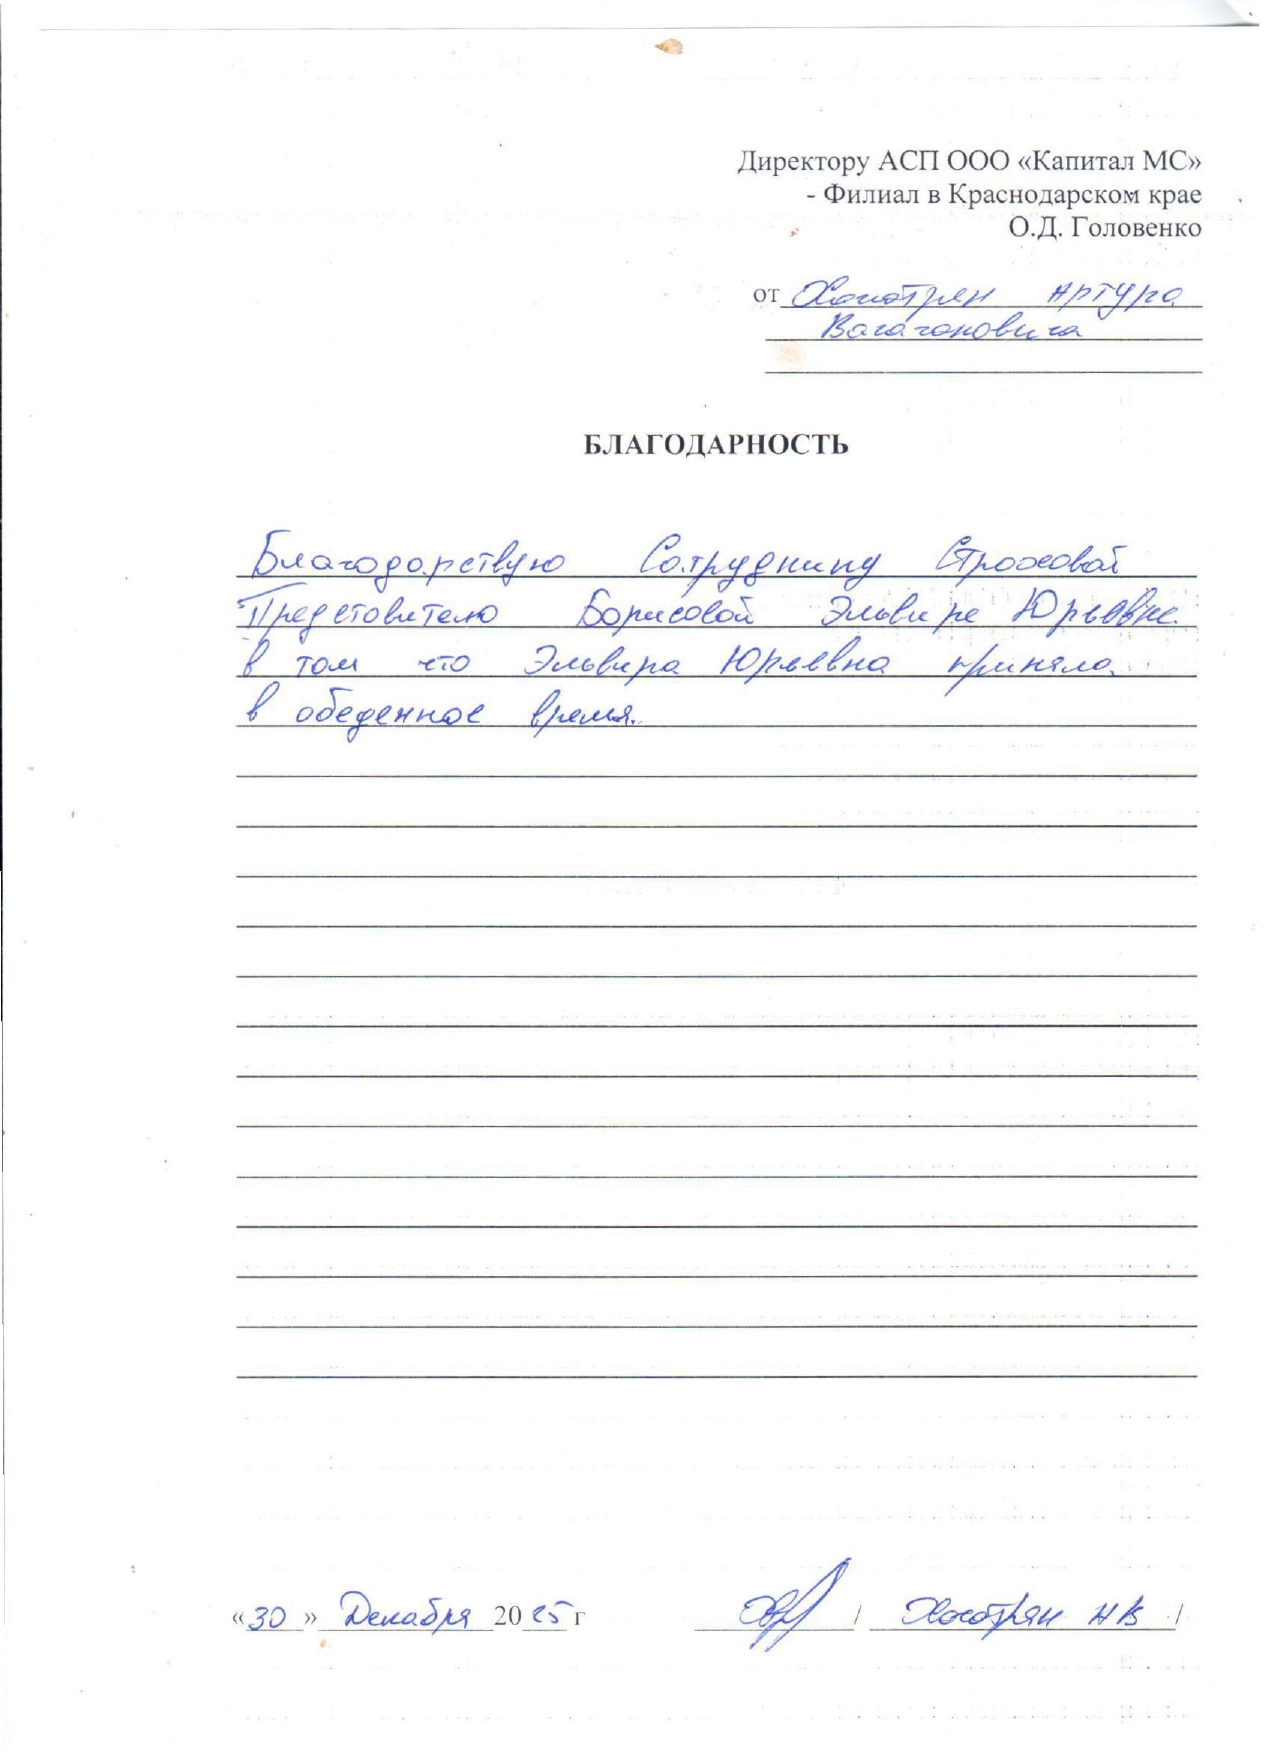 Директору АСП ООО «Капитал МС»
- Филиал в Краснодарском крае
О.Д. Головенко
от Хачатрян Артура
Вагагановича
БЛАГОДАРНОСТЬ
Благодарствую Сотруднику Страховой
Представителю Борисовой Эльвире Юрьевне
в том что Эльвира Юрьевна приняла
в обеденное время.
«30» Декабря 2025 г / Хачатрян АВ /